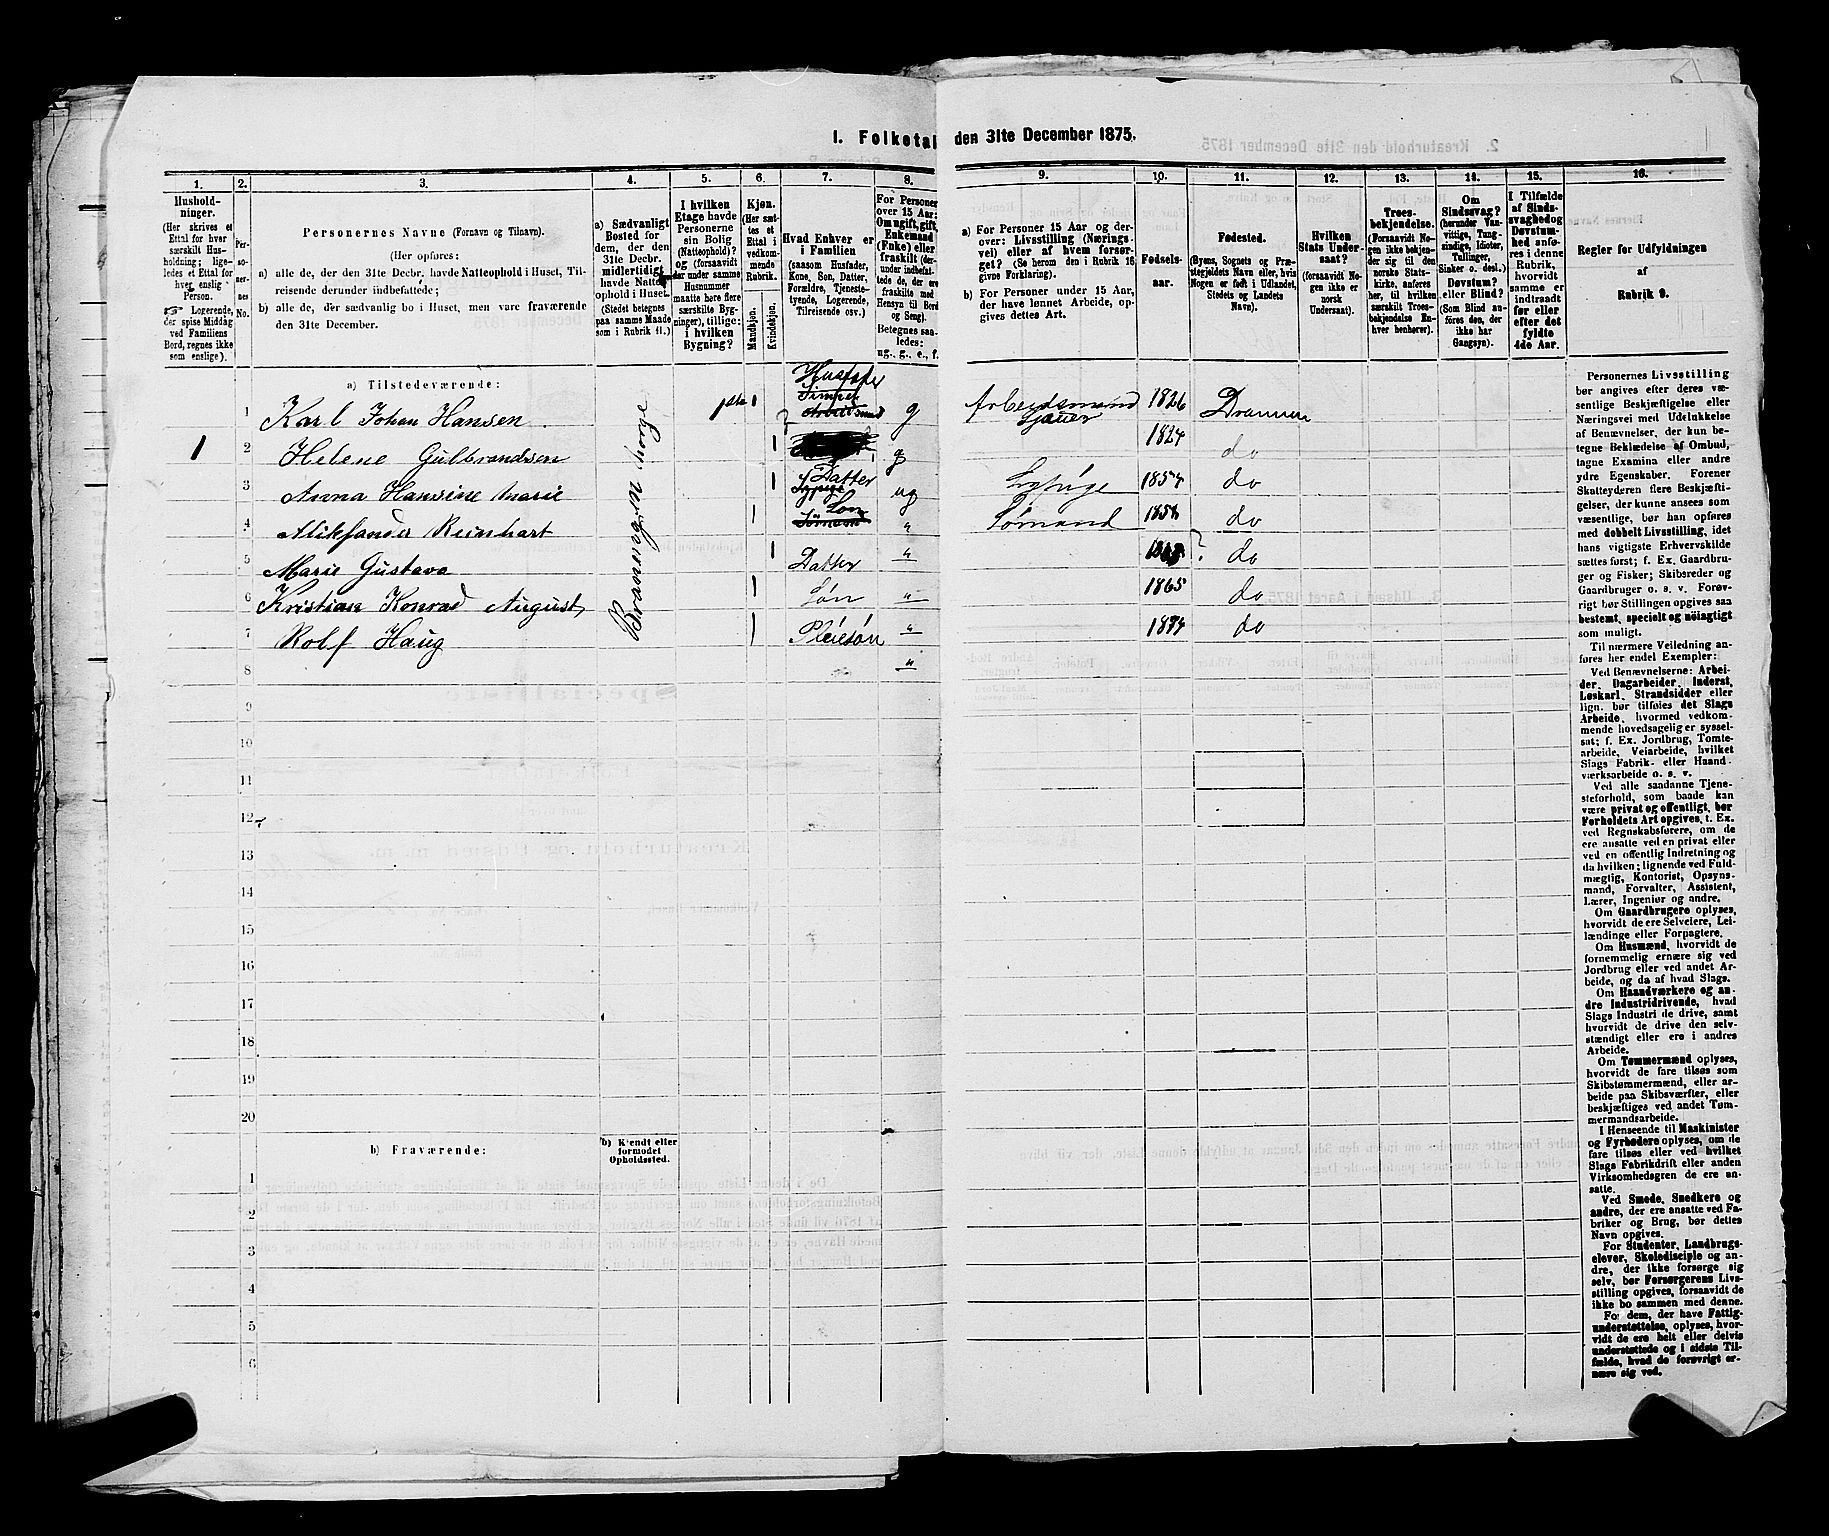 1. Folketal den 31te December 1875.
1. 2. 3. 4. 5. 6. 7. 8. 9. 10. 11. 12. 13. 14. 15. 16.
Hushold-
ninger.
(Her skrives et
Ettal for hver
særskilt Hus-
holdning; lige-
ledes et Ettal for
hver enslig
Person.
Logerende,
der spise Middag
ved Familiens
Bord, regnes ikke
som enslige).
Per-
so-
ner-
nes
No.
Personernes Navne (Fornavn og Tilnavn).
(Her opføres:
a) alle de, der den 31te Decbr. havde Natteophold i Huset, Til-
reisende derunder indbefattede;
b) alle de, der sædvanlig bo i Huset, men vare fraværende
den 31te December.
a) Sædvanligt
Bosted for
dem, der den
31te Decbr.
midlertidigt
havde Natte-
ophold i Huset.
(Stedet betegnes
paa samme Maade
som i Rubrik 11.)
I hvilken
Etage havde
Personerne
sin Bolig
(Natteophold)?
og (forsaavidt
der under samme
Husnummer
maatte høre flere
særskilte Byg-
ninger), tillige:
i hvilken
Bygning?
Kjøn.
(Her sæt-
tes et
Ettal i
vedkom-
mende
Rubrik.
Mandkjøn.
Kvindekjøn.
Hvad Enhver er
i Familien
(saasom Husfader,
Kone, Søn, Datter,
Forældre, Tjeneste-
tyende, Logerende,
Tilreisende osv.)
For Personer
over 15 Aar:
Om ugift, gift,
Enkemand
(Enke) eller
fraskilt (der-
under indbefat-
tede de, der ere
fraskilte med
Hensyn til Bord
og Seng).
Betegnes saa-
ledes:
ug., g., e., f.
a) For Personer 15 Aar og der-
over: Livsstilling (Nærings-
vei) eller af hvem forsør-
get? (Se herom den i Rubrik 16
givne Forklaring).
b) For Personer under 15 Aar,
der have lønnet Arbeide, op-
gives dettes Art.
Fødsels-
aar.
Fødested.
(Byens, Sognets og Præ-
stegjeldets Navn eller, hvis
Nogen er født i Udlandet,
Stedets og Landets
Navn).
Hvilken
Stats Under-
saat?
(forsaavidt No-
gen ikke er
norsk
Undersaat).
Troes-
bekjendelse.
(Forsaavidt No-
gen ikke bekjen-
der sig til den
norske Stats-
kirke, anføres
her, til hvilken
særskilt Troes-
bekjendelse En-
hver henhører).
Om
Sindssvag?
(herunder Van-
vittige, Tung-
sindige, Idioter,
Tullinger,
Sinker o. desl.)
Døvstum?
eller Blind?
(Som Blind an-
føres den, der
ikke har
Gangsyn).
I Tilfælde
af Sinds-
svaghed og
Døvstum-
hed anfø-
res i denne
Rubrik,
hvorvidt
samme er
indtraadt
før eller
efter det
fyldte
4de Aar.
Regler for Udfyldningen
af
Rubrik 9.
a) Tilstedeværende:
1 Karl Johan Hansen 1ste 1 Husfader g Arbeidsmand Sjauer 1826 Drammen
1 2 Helene Gulbrandsen 1 g 1824 do
3 Anna Hansine Marie 1 Datter ug Sypige 1854 do
4 Aliksander Reinhart 1 Søn " Sømand 1858 do
5 Marie Gustava 1 Datter " ? do
6 Kristian Konrad August 1 Søn " 1865 do
7 Rolf Haug 1 Pleiesøn " 1874 do
8 "
9
10
11
12
13
14
15
16
17
18
19
20
b) Fraværende:
b) Kjendt eller
formodet
Opholdssted.
1
2
3
4
5
6
Personernes Livsstilling
bør angives efter deres væ-
sentlige Beskjæftigelse eller
Næringsvei med Udelukkelse
af Benævnelser, der kun be-
tegne Beklædelse af Ombud,
tagne Examina eller andre
ydre Egenskaber. Forener
Skatteyderen flere Beskjæfti-
gelser, der kunne ansees som
væsentlige, bør han opføres
med dobbelt Livsstilling, idet
hans vigtigste Erhvervskilde
sættes først; f. Ex. Gaardbru-
ger og Fisker; Skibsreder og
Gaardbruger o. s. v. Forøv-
rigt bør Stillingen opgives saa
bestemt, specielt og nøiagtigt
som muligt.
Til nærmere Veiledning an-
føres her endel Exempler:
Ved Benævnelserne: Arbei-
der, Dagarbeider, Inderst,
Løskarl, Strandsidder eller
lign. bør tilføies det Slags
Arbeide, hvormed vedkom-
mende hovedsagelig er syssel-
sat; f. Ex. Jordbrug, Tomte-
arbeide, Veiarbeide, hvilket
Slags Fabrik- eller Haand-
værksarbeide o. s. v.
Ved alle saadanne Tjene-
steforhold, som baade kan
være privat og offentligt, bør
Forholdets Art opgives, f. Ex.
ved Regnskabsførere, om de
ere ansatte ved en privat eller
ved en offentlig Indretning og
da hvilken; lignende ved Fuld-
mægtig, Kontorist, Opsyns-
mand, Forvalter, Assistent,
Lærer, Ingeniør og andre.
Om Gaardbrugere oplyses,
hvorvidt de ere Selveiere, Lei-
lændinge eller Forpagtere.
Om Husmænd, hvorvidt de
fornemmelig ernære sig ved
Jordbrug eller ved andet Ar-
beide, og da af hvad Slags.
Om Haandværkere og an-
dre Industridrivende, hvad
Slags Industri de drive, samt
hvorvidt de drive den selv-
stændigt eller ere i andres
Arbeide.
Om Tømmermænd oplyses,
hvorvidt de fare tilsøs som
Skibstømmermænd, eller ar-
beide paa Skibsværfter, eller
beskjæftiges ved andet Tøm-
mermandsarbeide.
I Henseende til Maskinister
og Fyrbødere oplyses, om de
fare tilsøs eller ved hvilket
Slags Fabrikdrift eller anden
Virksomhedsgren de ere an-
satte.
Ved Smede, Snedkere og
andre, der ere ansatte ved Fa-
briker og Brug, bør dettes
Navn opgives.
For Studenter, Landbrugs-
elever, Skoledisciple og an-
dre, der ikke forsørge sig
selv, bør Forsørgerens Livs-
stilling opgives, forsaavidt de
ikke bo sammen med denne.
For dem, der have Fattig-
understøttelse, oplyses, hvor-
vidt de ere helt eller delvis
understøttede og i sidste Til-
fælde, hvad de forøvrigt er-
nære sig ved.